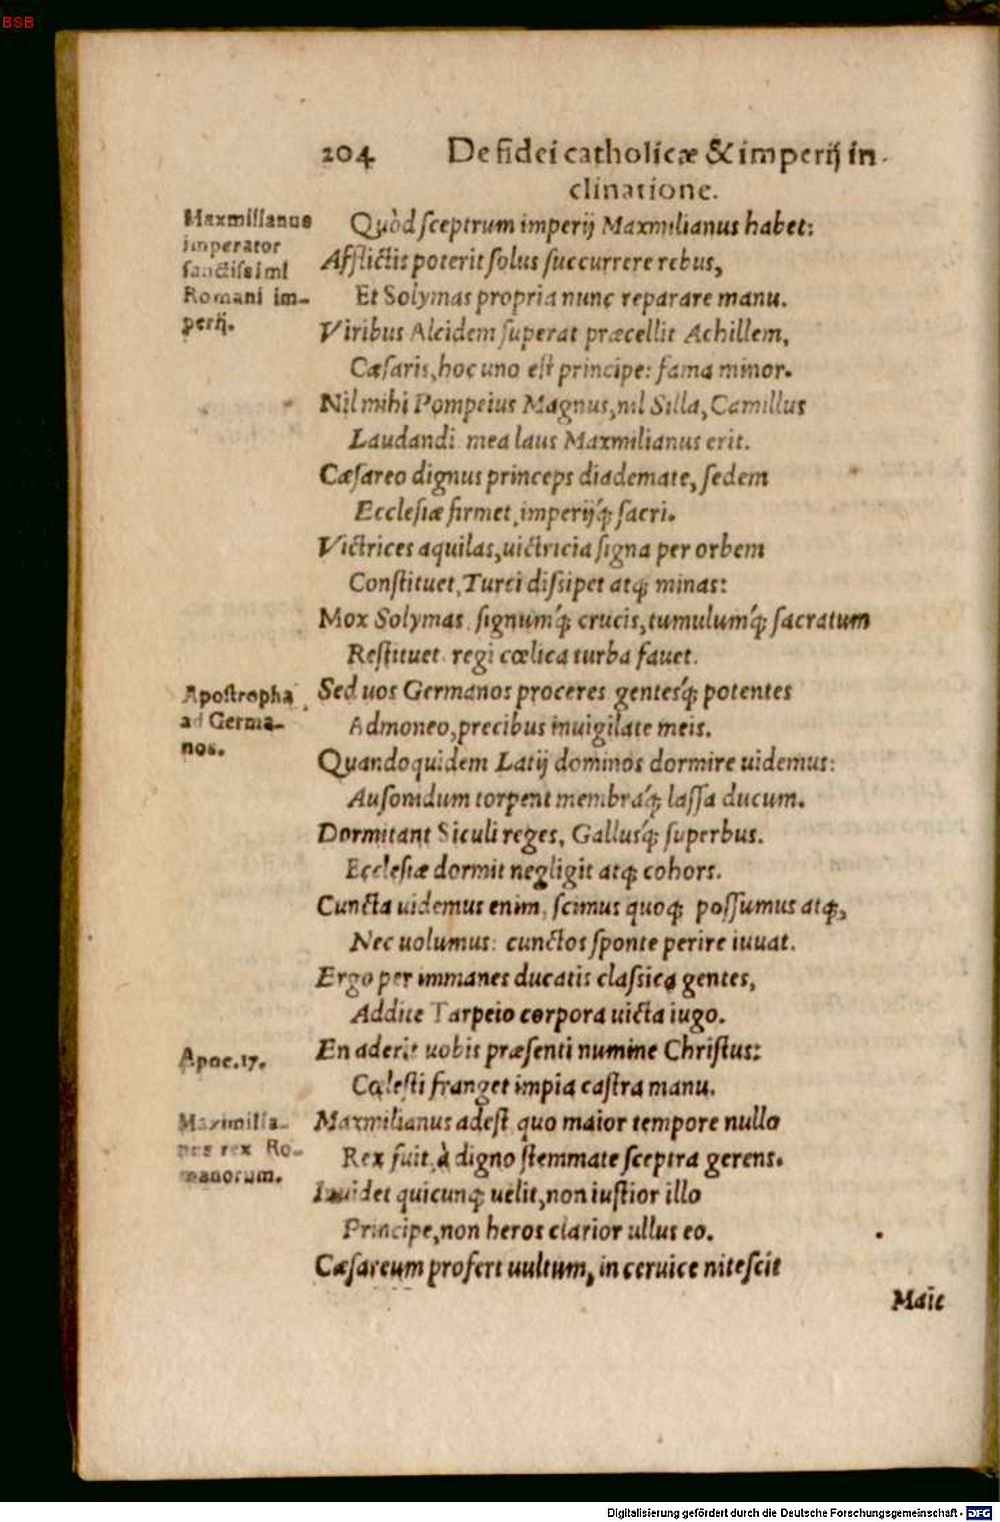 BSB
204 De fidei catholicæ & imperij in-
clinatione.
Maxmilianus
imperator
sanctissimi
Romani im-
perij.
Quòd sceptrum imperij Maxmilianus habet:
Afflictis poterit solus succurrere rebus,
Et Solymas propria nunc reparare manu.
Viribus Alcidem superat præcellit Achillem,
Cæsaris, hoc uno est principe: fama minor.
Nil mihi Pompeius Magnus, nil Silla, Camillus
Laudandi mea laus Maxmilianus erit.
Cæsareo dignus princeps diademate, sedem
Ecclesiæ firmet, imperijq́; sacri.
Victrices aquilas, uictricia signa per orbem
Constituet, Turci dissipet atq; minas:
Mox Solymas, signumq́; crucis, tumulumq́; sacratum
Restituet regi cœlica turba fauet.
Apostropha
ad Germa-
nos.
Sed uos Germanos proceres gentesq́; potentes
Admoneo, precibus inuigilate meis.
Quandoquidem Latij dominos dormire uidemus:
Ausonidum torpent membraq́; lassa ducum.
Dormitant Siculi reges, Gallusq́; superbus.
Ecclesiæ dormit negligit atq; cohors.
Cuncta uidemus enim, scimus quoq; possumus atq;,
Nec uolumus: cunctos sponte perire iuuat.
Ergo per immanes ducatis classica gentes,
Addite Tarpeio corpora uicta iugo.
Apoc.17.
En aderit uobis præsenti numine Christus:
Cœlesti franget impia castra manu.
Maximilia-
nus rex Ro-
manorum.
Maxmilianus adest quo maior tempore nullo
Rex fuit, à digno stemmate sceptra gerens.
Inuidet quicunq; uelit, non iustior illo
Principe, non heros clarior ullus eo.
Cæsareum profert uultum, in ceruice nitescit
Maie
Digitalisierung gefördert durch die Deutsche Forschungsgemeinschaft - DFG